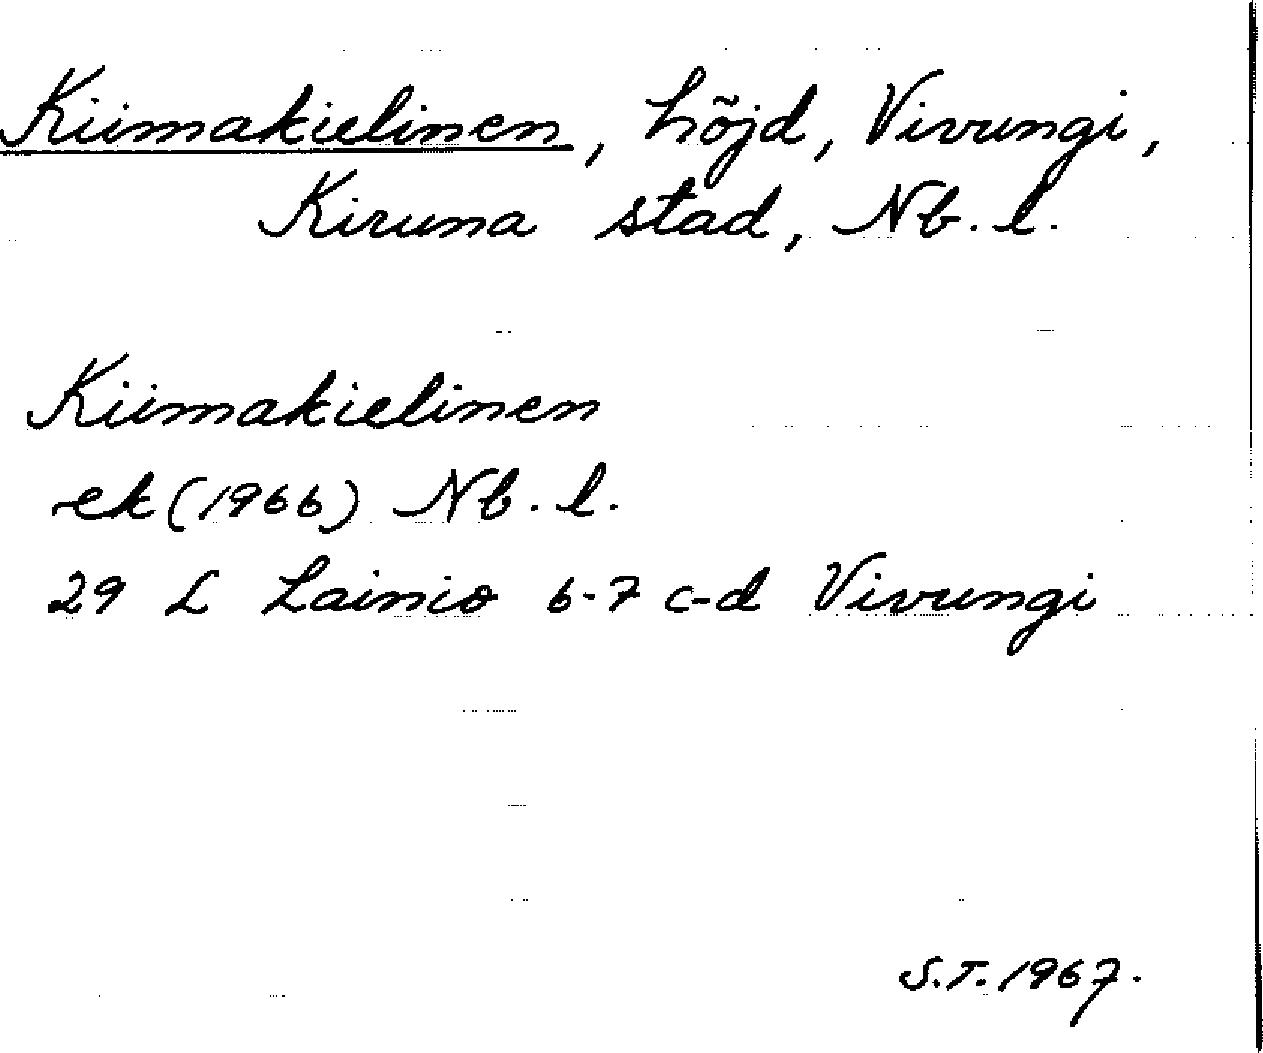 Kiimakielinen, höjd, Vivungi,
Kiruna stad, Nb. l.
Kiimakielinen
ek (1966) Nb. l.
29 L Lainio 6-7 c-d Vivungi
S.T. 1967.